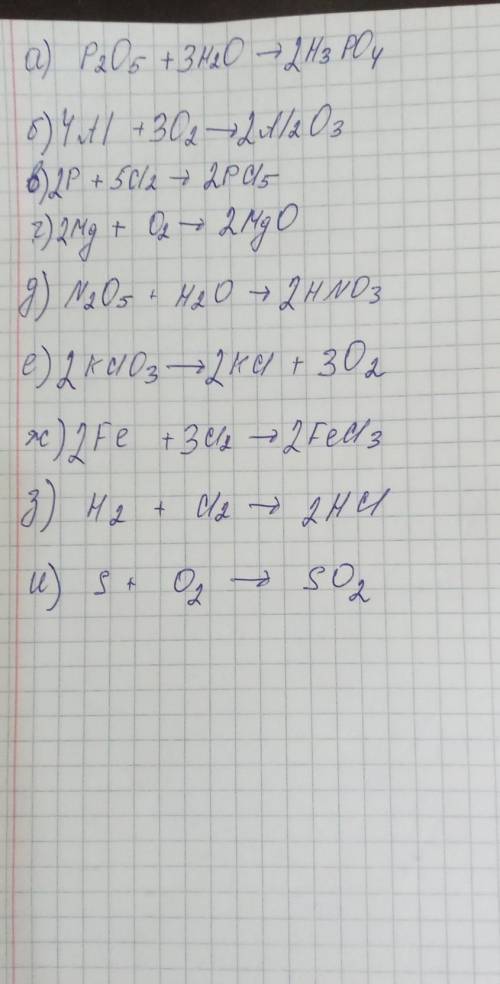 а) P2O5 + 3H2O → 2H3PO4
б) 4Al + 3O2 → 2Al2O3
в) 2P + 5Cl2 → 2PCl5
г) 2Mg + O2 → 2MgO
д) N2O5 + H2O → 2HNO3
е) 2KClO3 → 2KCl + 3O2
ж) 2Fe + 3Cl2 → 2FeCl3
з) H2 + Cl2 → 2HCl
и) S + O2 → SO2